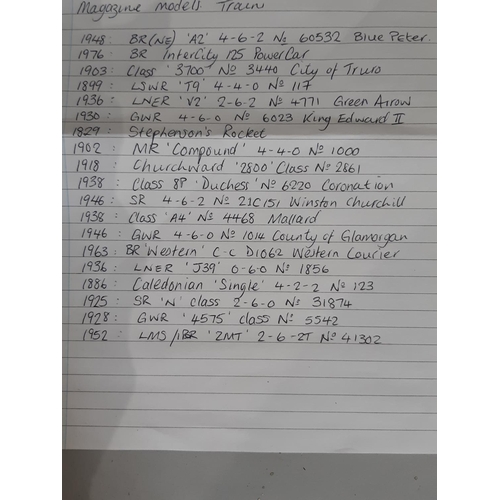 Magazine models Train
1948: BR(NE) 'A2' 4-6-2 No 60532 Blue Peter.
1976: BR InterCity 125 PowerCar
1903: Class '3700' No 3440 City of Truro
1899: LSWR 'T9' 4-4-0 No 117
1936: LNER 'V2' 2-6-2 No 4771 Green Arrow
1930: GWR 4-6-0 No 6023 King Edward II
1829: Stephenson's Rocket
1902: MR 'Compound' 4-4-0 No 1000
1918: Churchward '2800' Class No 2861
1938: Class 8P 'Duchess' No 6220 Coronation
1946: SR 4-6-2 No 21C151 Winston Churchill
1938: Class 'A4' No 4468 Mallard
1946: GWR 4-6-0 No 1014 County of Glamorgan
1963: BR 'Western' C-C D1062 Western Courier
1936: LNER 'J39' 0-6-0 No 1856
1886: Caledonian 'Single' 4-2-2 No 123
1925: SR 'N' class 2-6-0 No 31874
1928: GWR '4575' class No 5542
1952: LMS/BR '2MT' 2-6-2T No 41302